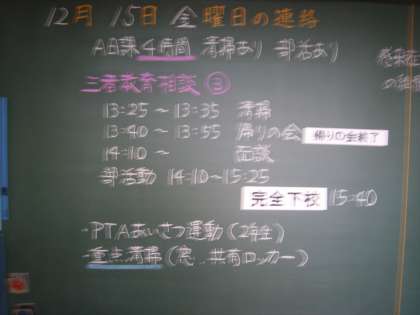 12月 15日 金曜日の連絡
A日課 4時間 清掃あり 部活あり
三者教育相談 ③
13:25 〜 13:35 清掃
13:40 〜 13:55 帰りの会 帰りの会終了
14:10 〜 面談
部活動 14:10〜15:25
完全下校 15:40
・PTAあいさつ運動(2年生)
・重点清掃(窓、共有ロッカー)